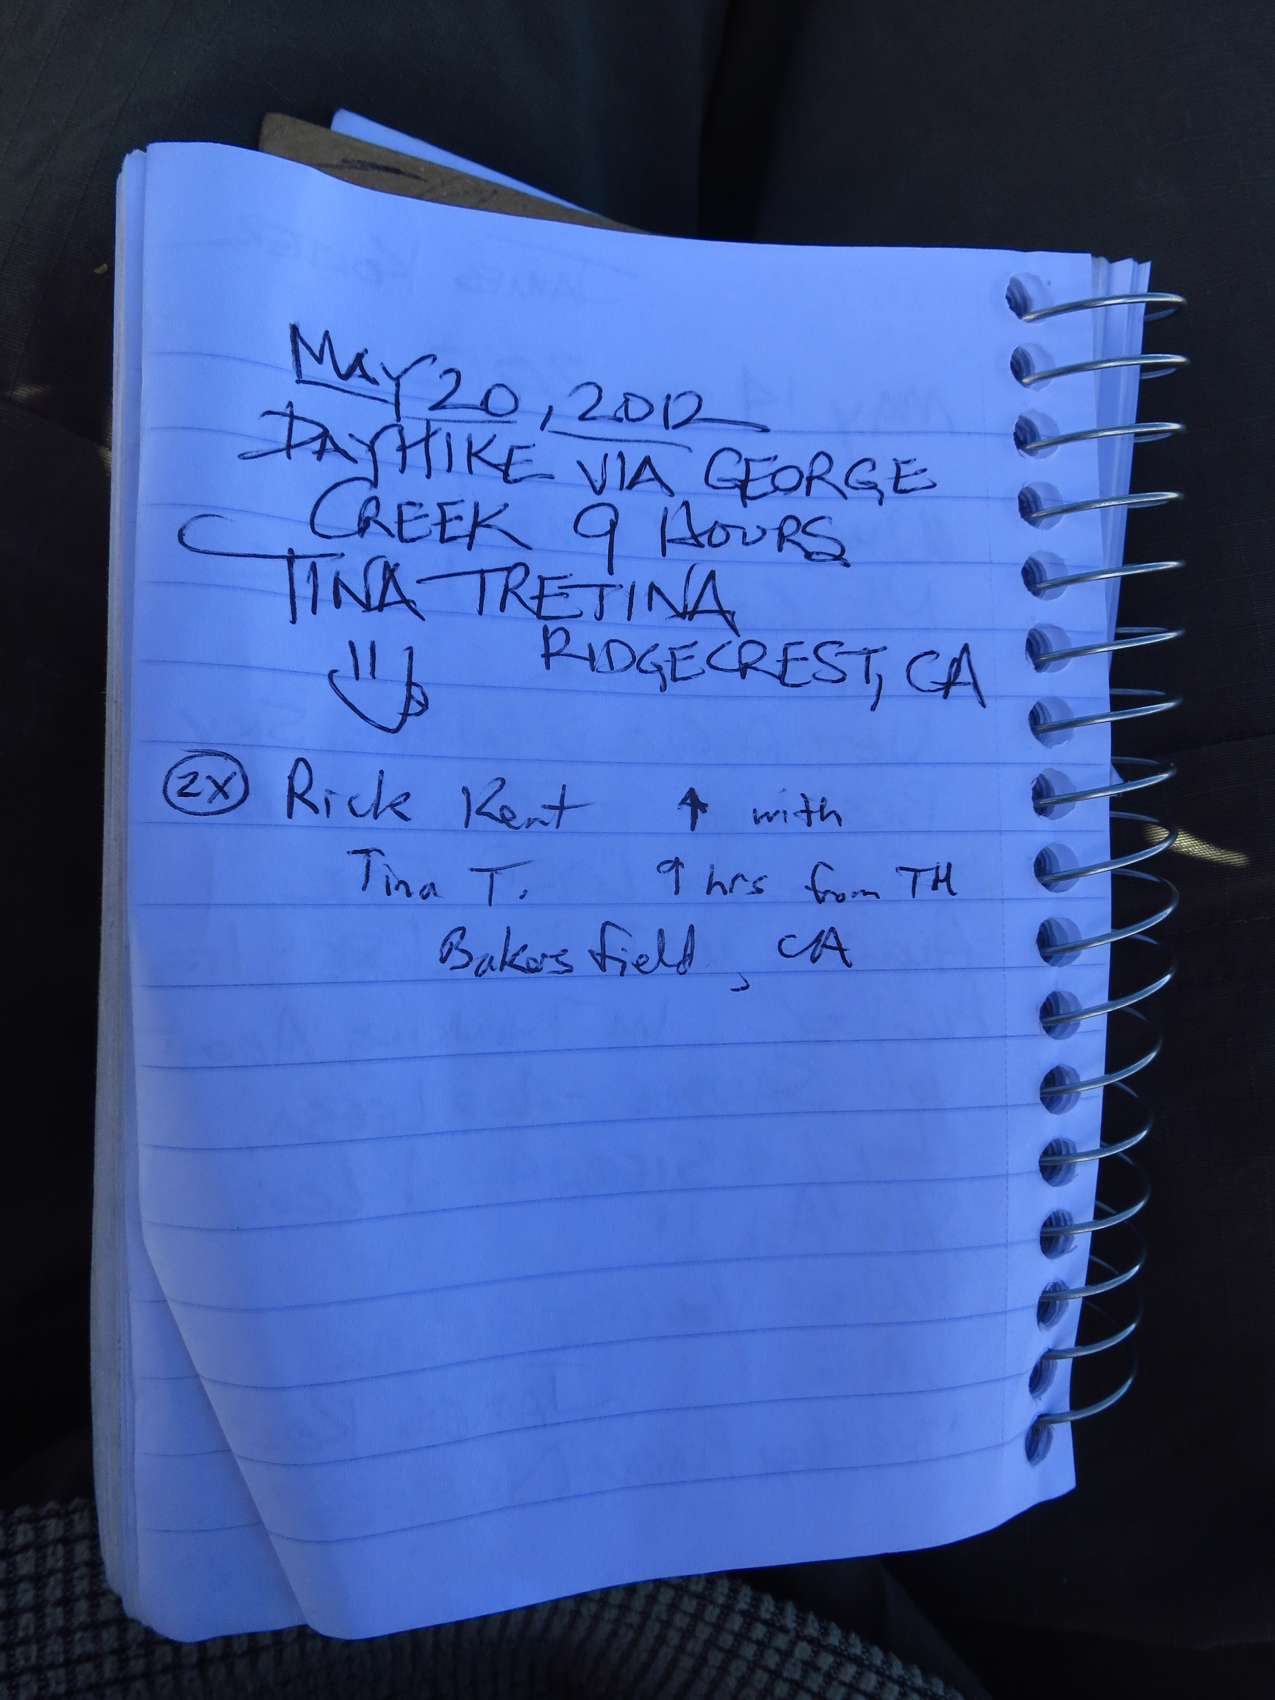 May 20, 2012
DAYHIKE VIA GEORGE
CREEK 9 HOURS
TINA TRETINA
RIDGECREST, CA
2X Rick Kent ↑ with
Tina T. 9 hrs from TH
Bakersfield, CA